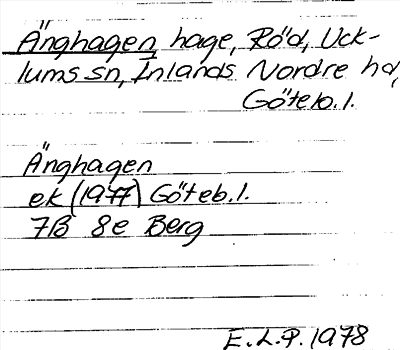 Änghagen hage, Röd, Uck-
lums sn, Inlands Nordre hd,
Göteb. l.
Änghagen
ek (1977) Göteb. l.
7B 8e Berg
E.L.P. 1978